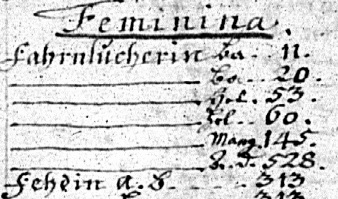 Feminina.
Fahrnlucherin ba. 11.
Bo. 20.
Hel. 53.
Hel. 60.
Mang. 145.
S. d. 528.
Fehein a. b. 313
313